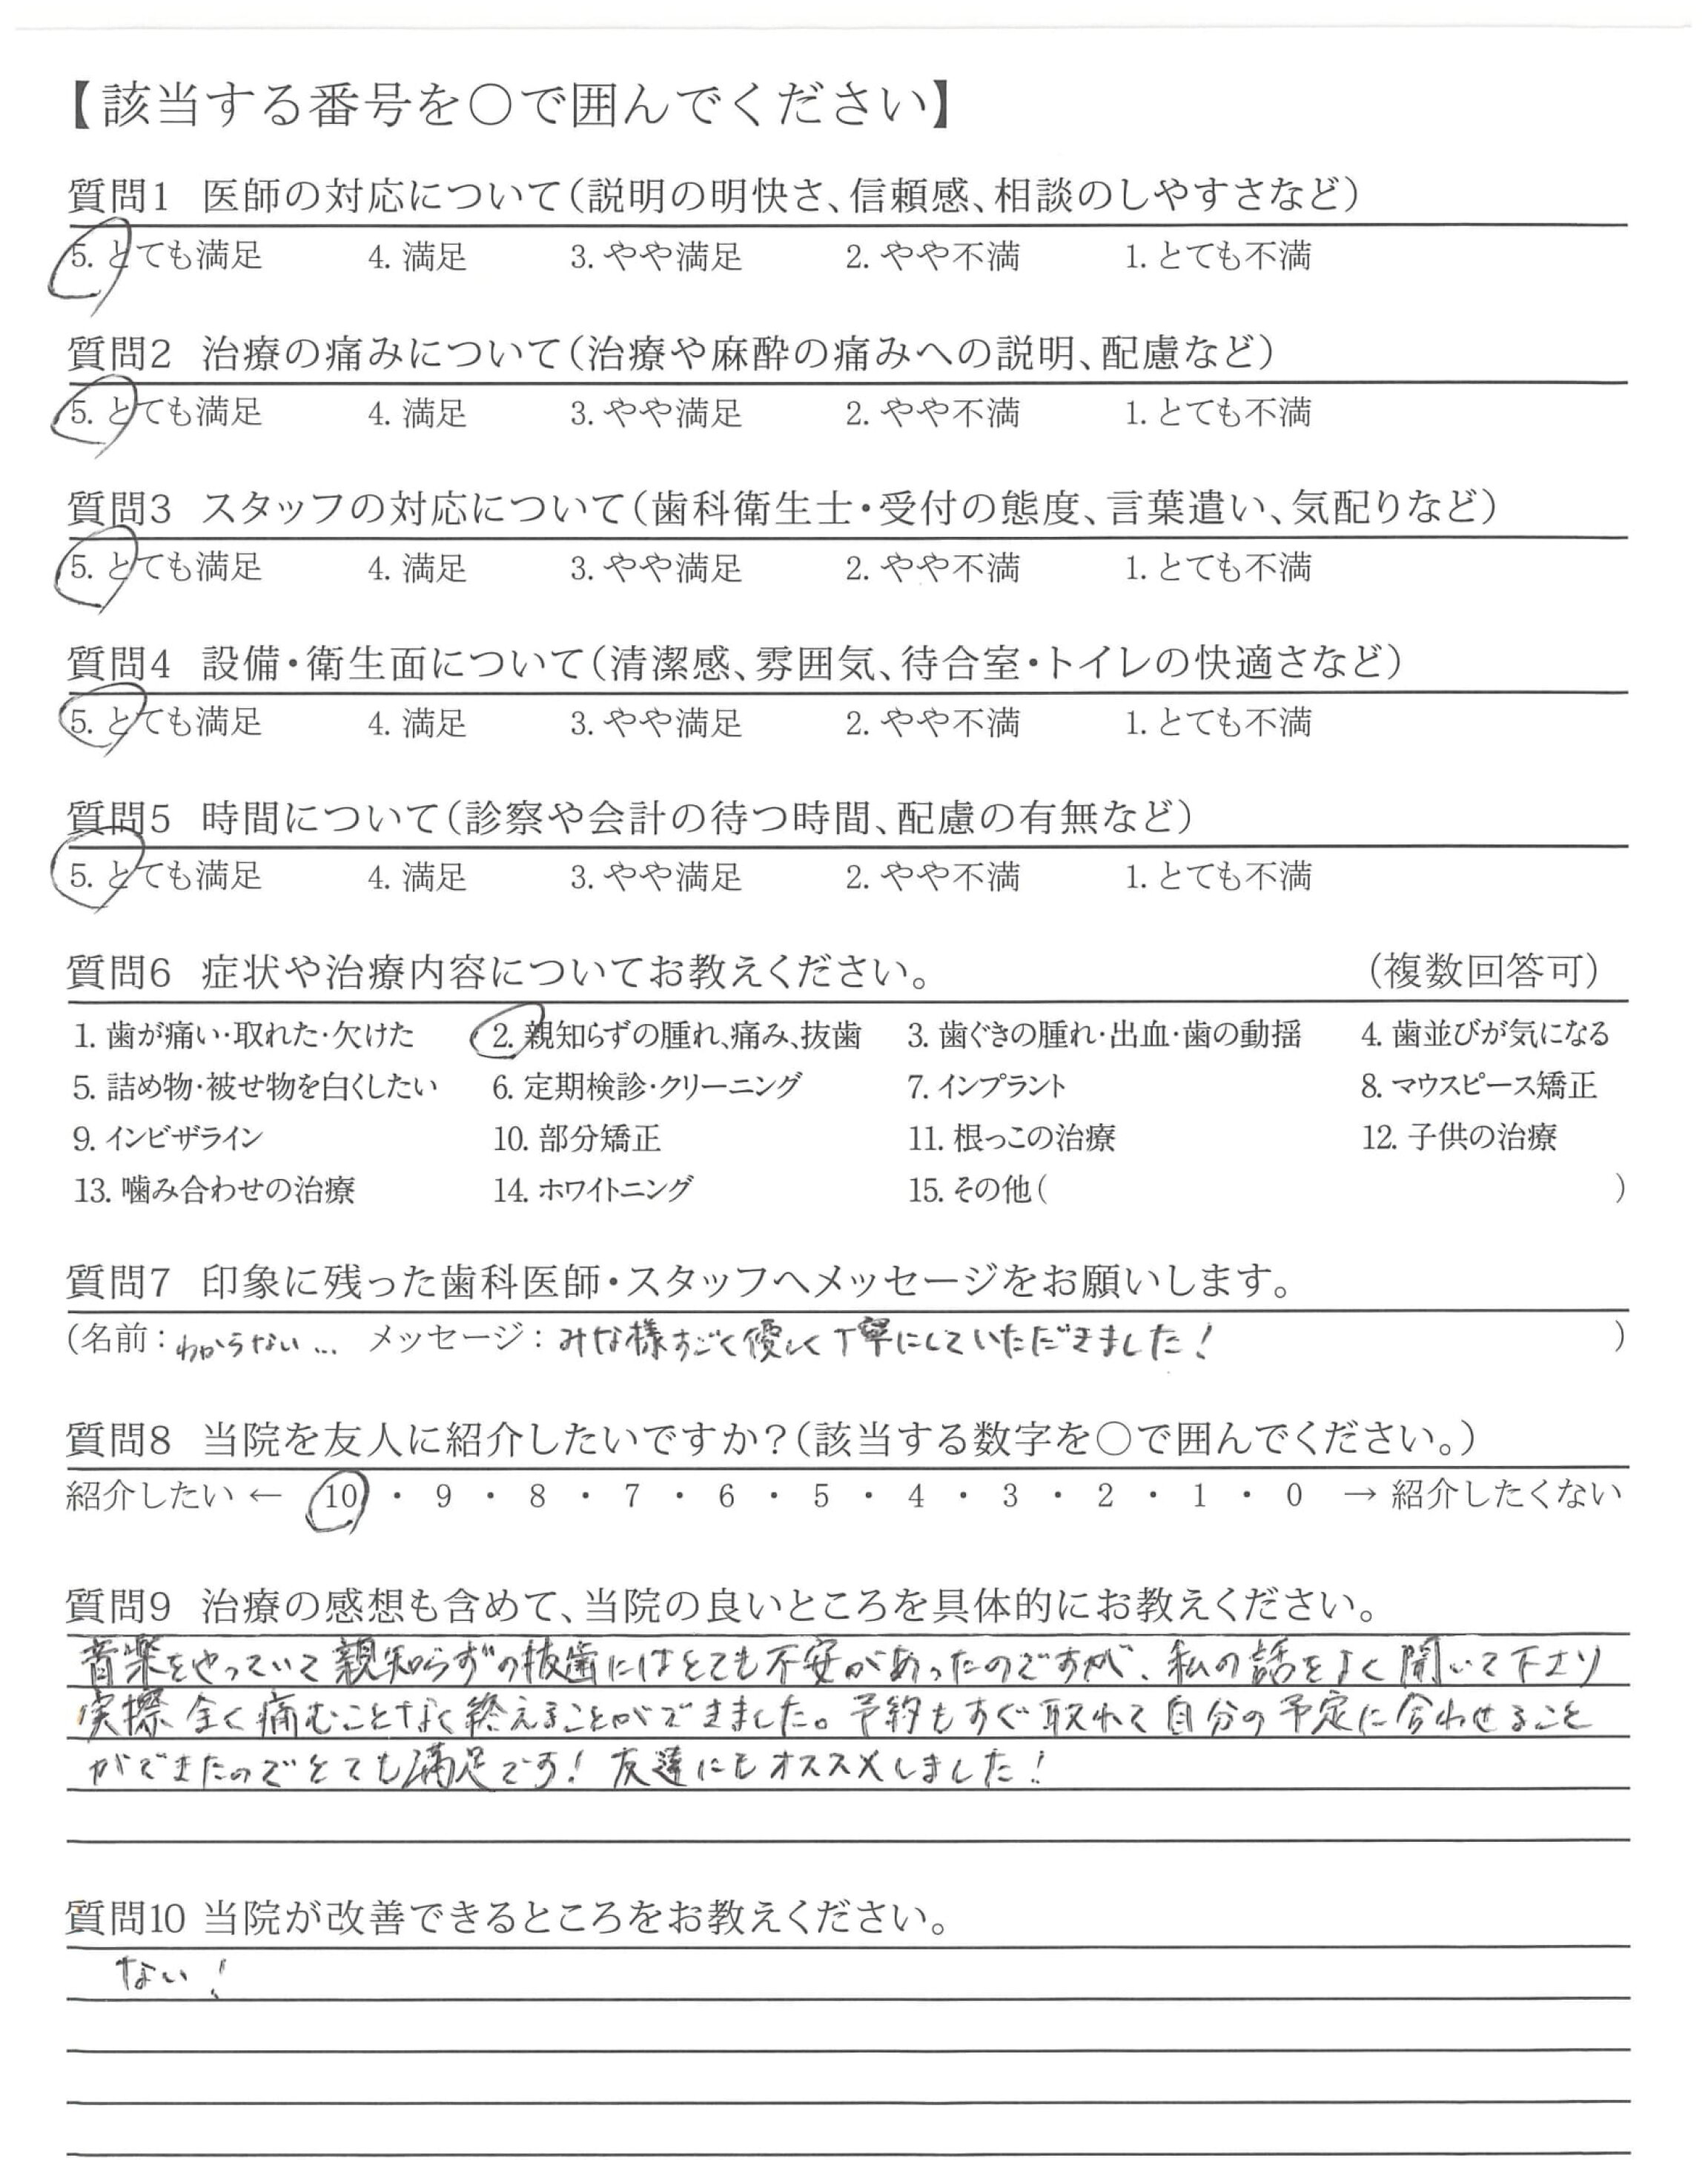 【該当する番号を○で囲んでください】
質問1 医師の対応について(説明の明快さ、信頼感、相談のしやすさなど)
5. とても満足 4. 満足 3. やや満足 2. やや不満 1. とても不満
質問2 治療の痛みについて(治療や麻酔の痛みへの説明、配慮など)
5. とても満足 4. 満足 3. やや満足 2. やや不満 1. とても不満
質問3 スタッフの対応について(歯科衛生士・受付の態度、言葉遣い、気配りなど)
5. とても満足 4. 満足 3. やや満足 2. やや不満 1. とても不満
質問4 設備・衛生面について(清潔感、雰囲気、待合室・トイレの快適さなど)
5. とても満足 4. 満足 3. やや満足 2. やや不満 1. とても不満
質問5 時間について(診察や会計の待つ時間、配慮の有無など)
5. とても満足 4. 満足 3. やや満足 2. やや不満 1. とても不満
質問6 症状や治療内容についてお教えください。 (複数回答可)
1. 歯が痛い・取れた・欠けた 2. 親知らずの腫れ、痛み、抜歯 3. 歯ぐきの腫れ・出血・歯の動揺 4. 歯並びが気になる
5. 詰め物・被せ物を白くしたい 6. 定期検診・クリーニング 7. インプラント 8. マウスピース矯正
9. インビザライン 10. 部分矯正 11. 根っこの治療 12. 子供の治療
13. 噛み合わせの治療 14. ホワイトニング 15. その他( )
質問7 印象に残った歯科医師・スタッフへメッセージをお願いします。
(名前:わからない… メッセージ:みな様すごく優しく丁寧にしていただきました! )
質問8 当院を友人に紹介したいですか?(該当する数字を○で囲んでください。)
紹介したい ← 10 ・ 9 ・ 8 ・ 7 ・ 6 ・ 5 ・ 4 ・ 3 ・ 2 ・ 1 ・ 0 → 紹介したくない
質問9 治療の感想も含めて、当院の良いところを具体的にお教えください。
音楽をやっていて親知らずの抜歯にはとても不安があったのですが、私の話をよく聞いて下さり
実際全く痛むことなく終えることができました。予約もすぐ取れて自分の予定に合わせること
ができたのでとても満足です! 友達にもオススメしました!
質問10 当院が改善できるところをお教えください。
ない!